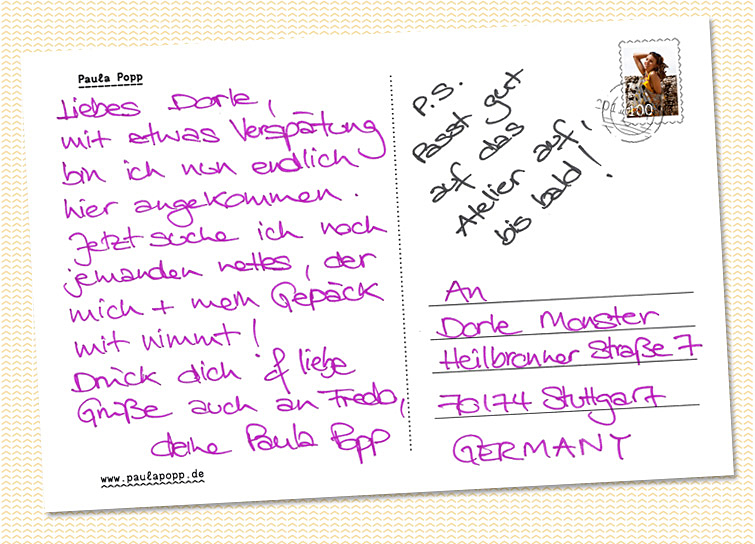 Paula Popp
Liebes Dorle,
mit etwas Verspätung
bin ich nun endlich
hier angekommen.
Jetzt suche ich noch
jemanden nettes, der
mich + mein Gepäck
mit nimmt!
Drück dich & liebe
Grüße auch an Fredo,
deine Paula Popp
www.paulapopp.de
P.S.
Passt gut
auf das
Atelier auf,
bis bald!
100
An
Dorle Monster
Heilbronner Straße 7
70174 Stuttgart
GERMANY